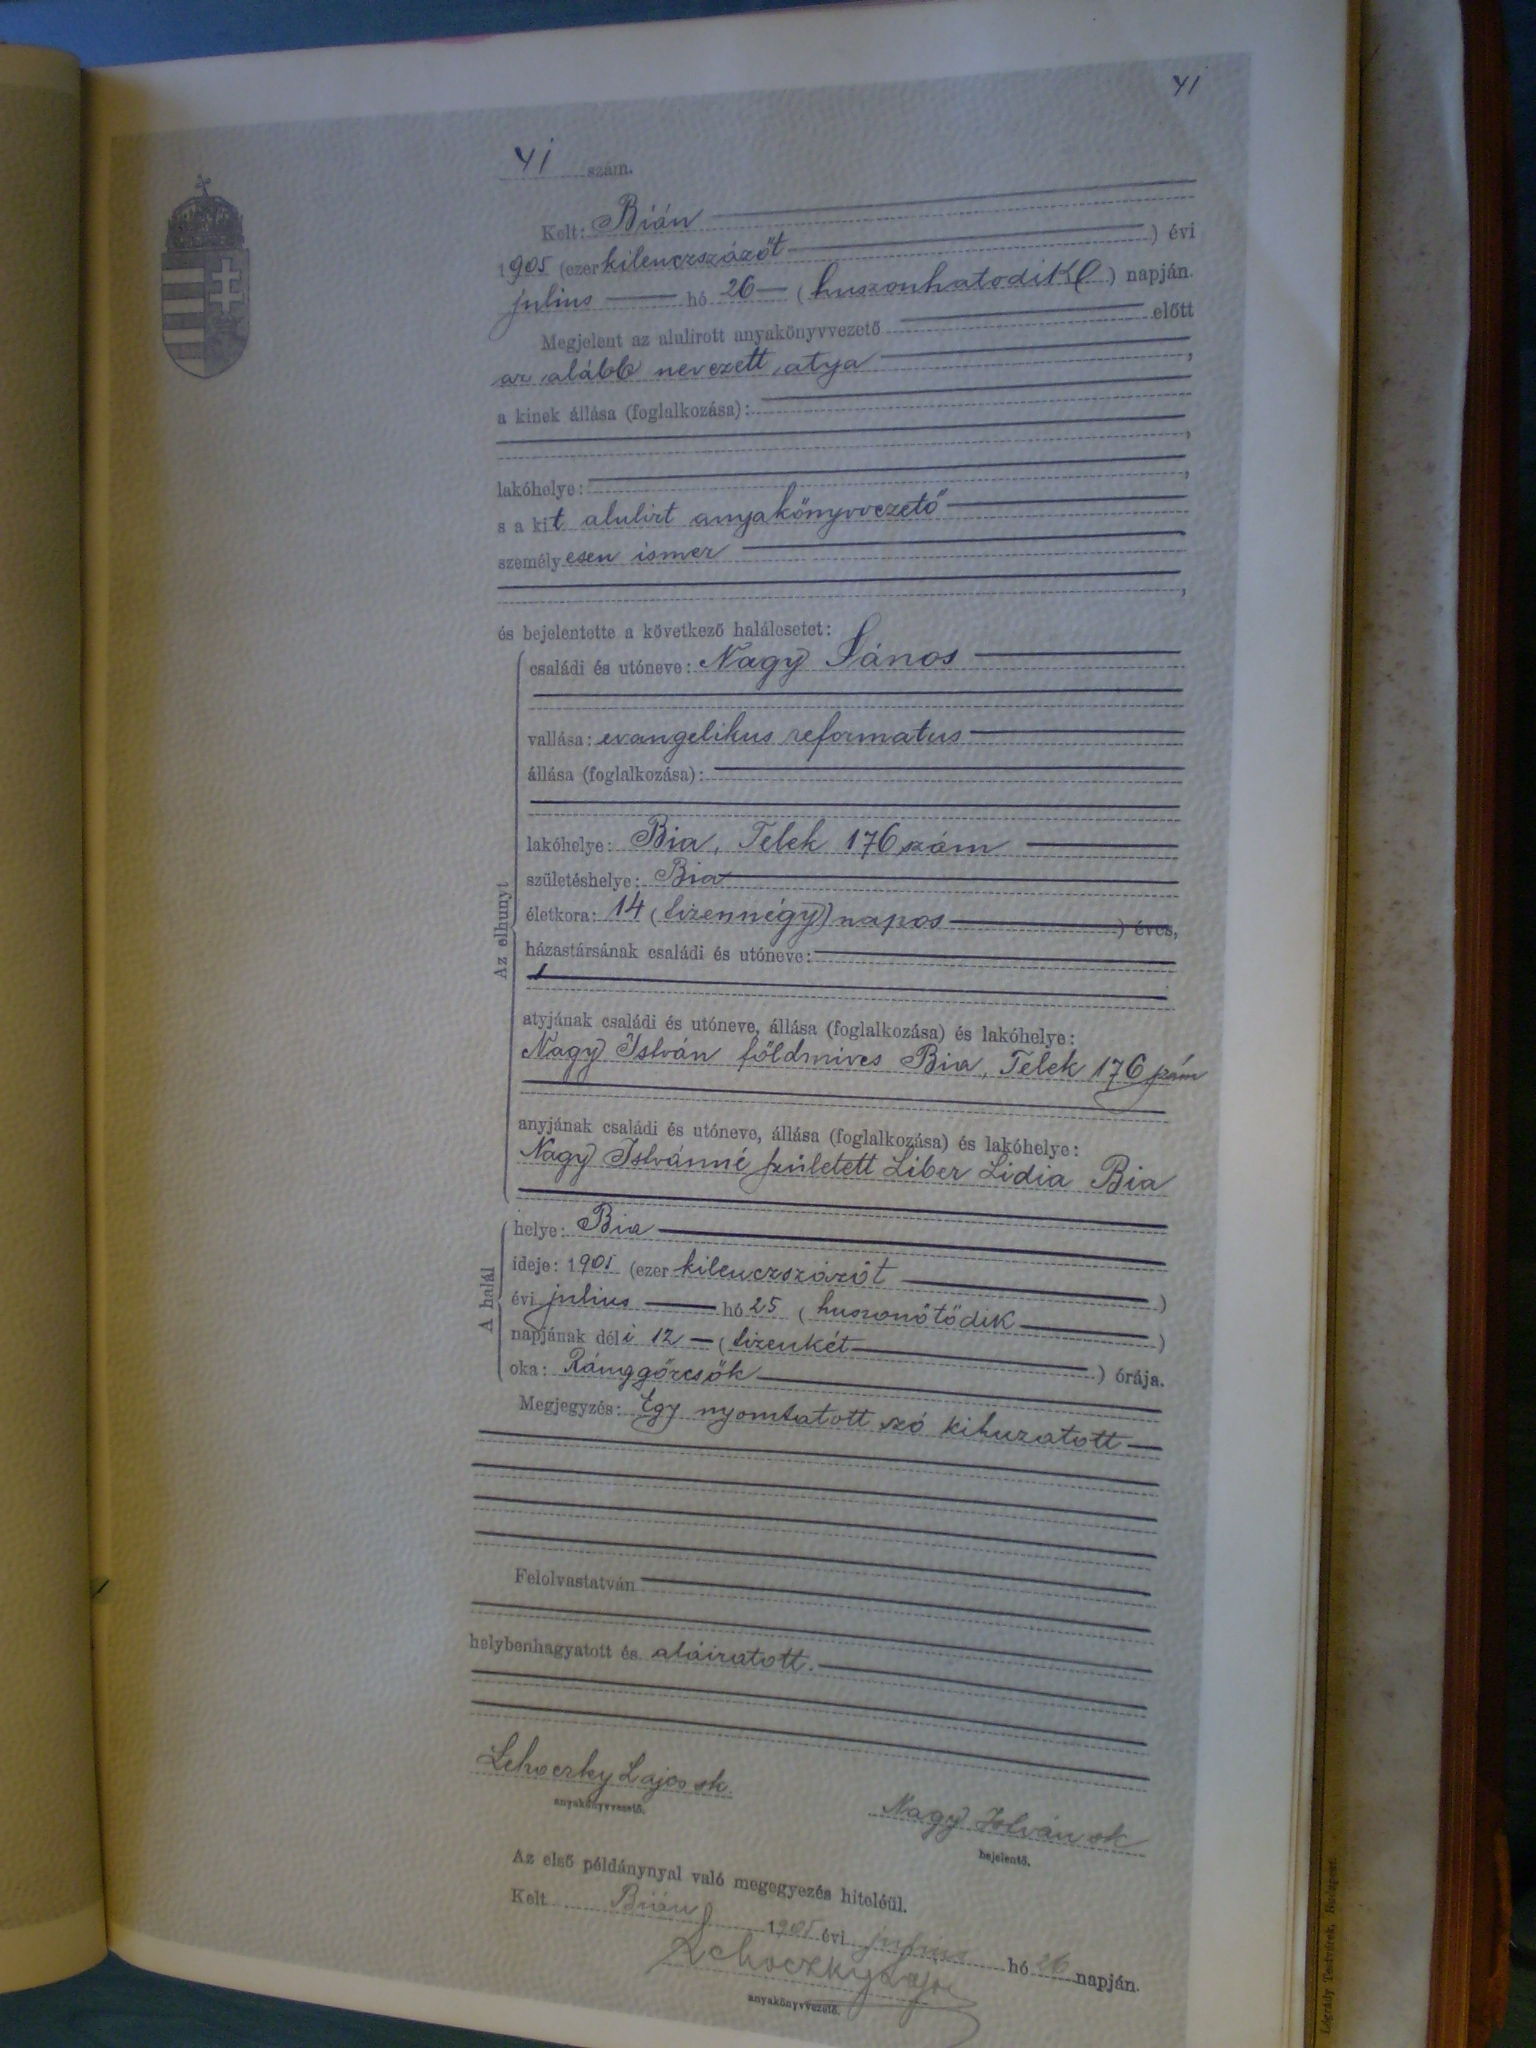 41
41 szám.
Kelt: Bián
1905 (ezer kilenczszázöt ) évi
julius hó 26 (huszonhatodik ) napján.
Megjelent az alulirott anyakönyvvezető előtt
az alább nevezett atya ,
a kinek állása (foglalkozása):
,
lakóhelye: ,
s a kit alulirt anyakönyvvezető
személyesen ismer
,
és bejelentette a következő halálesetet:
Az elhunyt
családi és utóneve: Nagy János
vallása: evangelikus reformatus
állása (foglalkozása):
lakóhelye: Bia, Telek 176 szám
születéshelye: Bia
életkora: 14 (tizennégy) napos ) éves,
házastársának családi és utóneve:
atyjának családi és utóneve, állása (foglalkozása) és lakóhelye:
Nagy István földmives Bia, Telek 176 szám
anyjának családi és utóneve, állása (foglalkozása) és lakóhelye:
Nagy Istvánné született Liber Lidia Bia
A halál
helye: Bia
ideje: 1905 (ezer kilenczszázöt )
évi julius hó 25 (huszonötödik )
napjának déli 12 (tizenkét ) órája.
oka: Ránggörcsök
Megjegyzés: Egy nyomtatott szó kihuzatott
Felolvastatván
helybenhagyatott és aláiratott.
Lehoczky Lajos sk.
anyakönyvvezető.
Nagy István sk
bejelentő.
Az első példánynyal való megegyezés hiteléül.
Kelt Bián 1905 évi julius hó 26 napján.
Lehoczky Lajos
anyakönyvvezető.
Légrády Testvérek, Budapest.